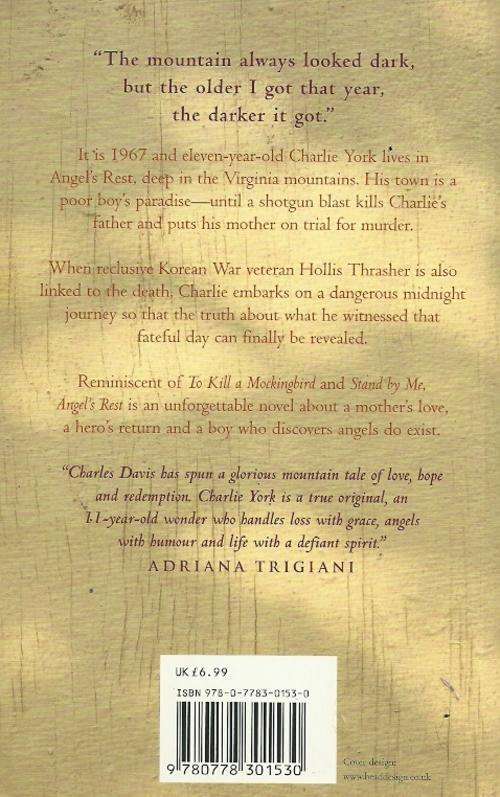 “The mountain always looked dark,
but the older I got that year,
the darker it got.”
It is 1967 and eleven-year-old Charlie York lives in
Angel's Rest, deep in the Virginia mountains. His town is a
poor boy's paradise—until a shotgun blast kills Charlie's
father and puts his mother on trial for murder.
When reclusive Korean War veteran Hollis Thrasher is also
linked to the death, Charlie embarks on a dangerous midnight
journey so that the truth about what he witnessed that
fateful day can finally be revealed.
Reminiscent of To Kill a Mockingbird and Stand by Me,
Angel's Rest is an unforgettable novel about a mother's love,
a hero's return and a boy who discovers angels do exist.
“Charles Davis has spun a glorious mountain tale of love, hope
and redemption. Charlie York is a true original, an
11-year-old wonder who handles loss with grace, angels
with humour and life with a defiant spirit.”
ADRIANA TRIGIANI
UK £6.99
ISBN 978-0-7783-0153-0
9 780778 301530
Cover design:
www.headdesign.co.uk